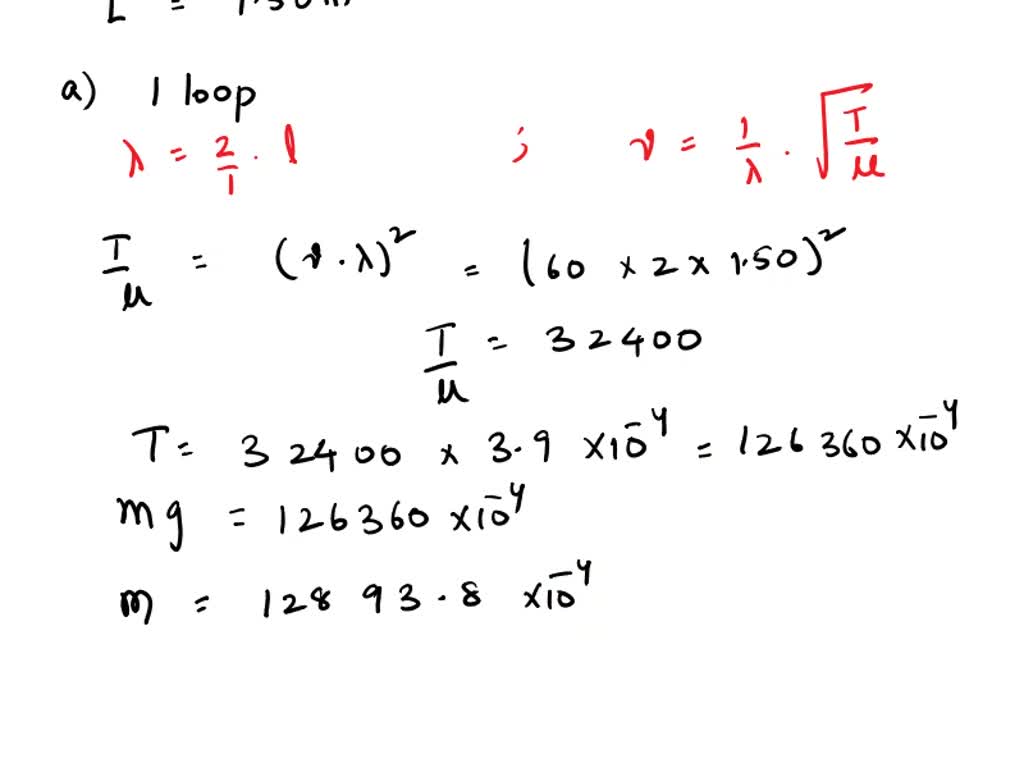 L = 1.50 m
a) 1 loop
λ = 2/1 . l ; ν = 1/λ . √(T/μ)
T/μ = (ν . λ)² = (60 × 2 × 1.50)²
T/μ = 32400
T = 32400 × 3.9 × 10⁻⁴ = 126360 × 10⁻⁴
mg = 126360 × 10⁻⁴
m = 12893.8 × 10⁻⁴